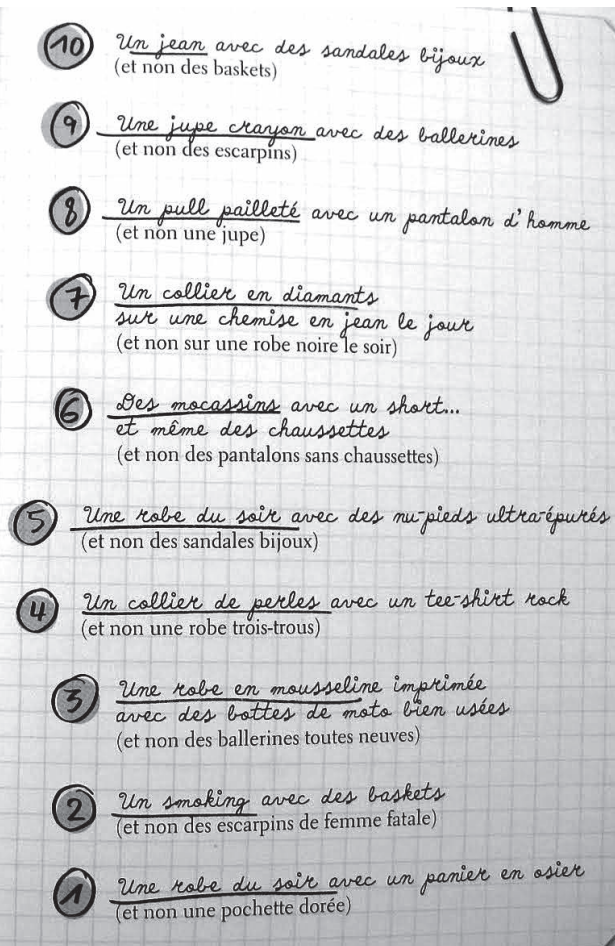 10 Un jean avec des sandales bijoux
(et non des baskets)
9 Une jupe crayon avec des ballerines
(et non des escarpins)
8 Un pull pailleté avec un pantalon d'homme
(et non une jupe)
7 Un collier en diamants
sur une chemise en jean le jour
(et non sur une robe noire le soir)
6 Des mocassins avec un short...
et même des chaussettes
(et non des pantalons sans chaussettes)
5 Une robe du soir avec des nu-pieds ultra-épurés
(et non des sandales bijoux)
4 Un collier de perles avec un tee-shirt rock
(et non une robe trois-trous)
3 Une robe en mousseline imprimée
avec des bottes de moto bien usées
(et non des ballerines toutes neuves)
2 Un smoking avec des baskets
(et non des escarpins de femme fatale)
1 Une robe du soir avec un panier en osier
(et non une pochette dorée)